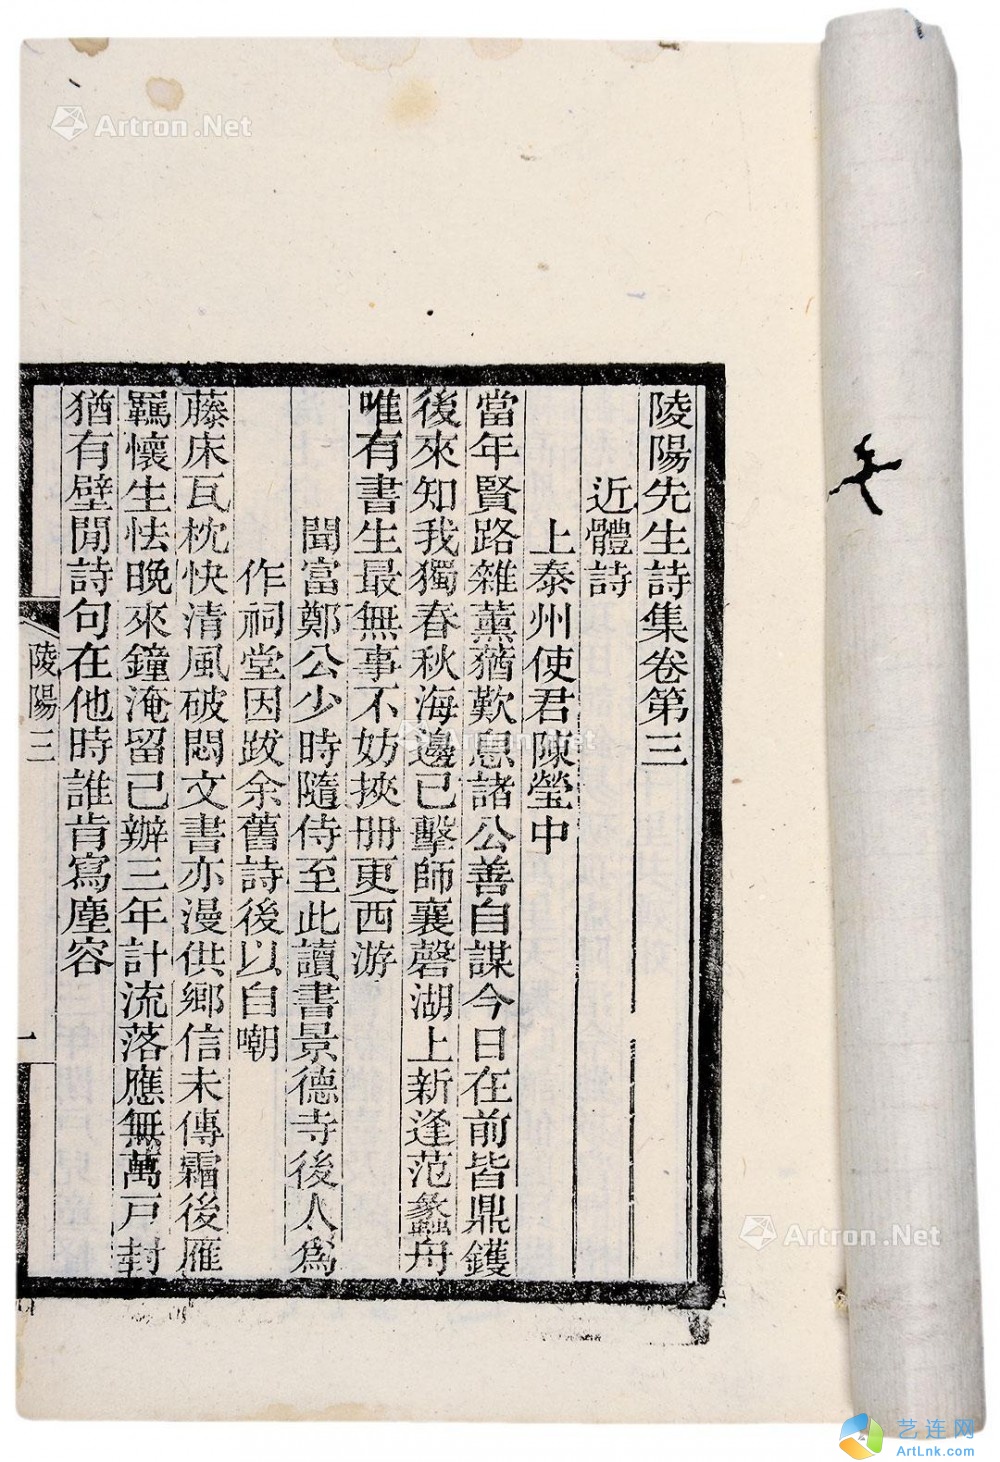 陵陽先生詩集卷第三
近體詩
上泰州使君陳瑩中
當年賢路雜薰蕕歎息諸公善自謀今日在前皆鼎鑊
後來知我獨春秋海邊已擊師襄磬湖上新逢范蠡舟
唯有書生最無事不妨挾冊更西游
聞富鄭公少時隨侍至此讀書景德寺後人為
作祠堂因跋余舊詩後以自嘲
藤床瓦枕快清風破悶文書亦漫供鄉信未傳霜後雁
羈懷生怯晚來鐘淹留已辦三年計流落應無萬戶封
猶有壁閒詩句在他時誰肯寫塵容
陵陽三
一
Artron.Net
Artron.Net
Artron.Net
艺连网
ArtLnk.com